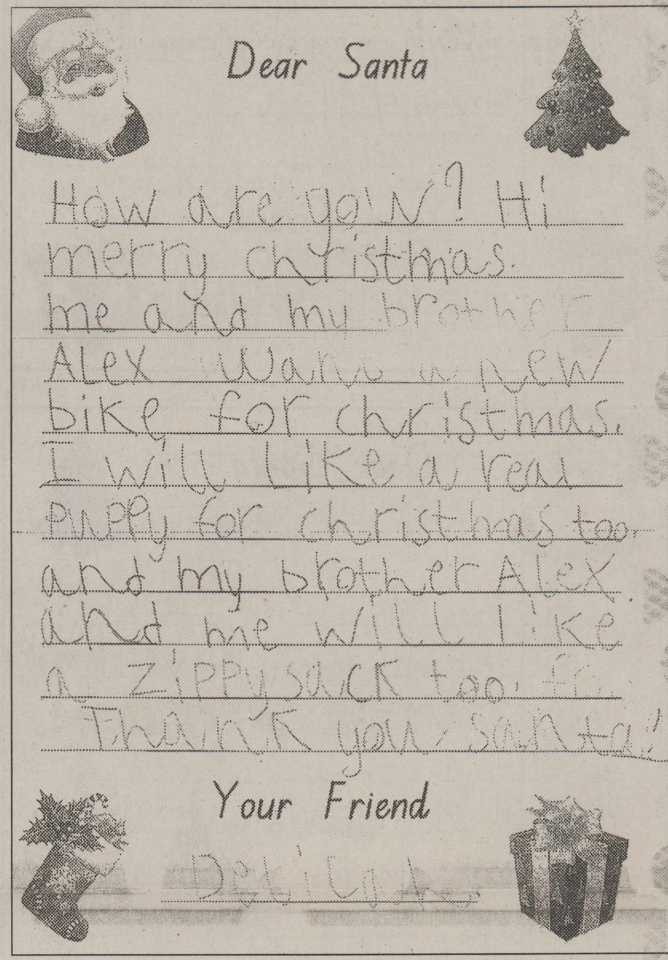 Dear Santa
How are you? Hi
merry christmas.
me and my brother
Alex want a new
bike for christmas.
I will like a real
puppy for christmas too.
and my brother Alex.
and me will like
a zippysack too.
Thank you santa!
Your Friend